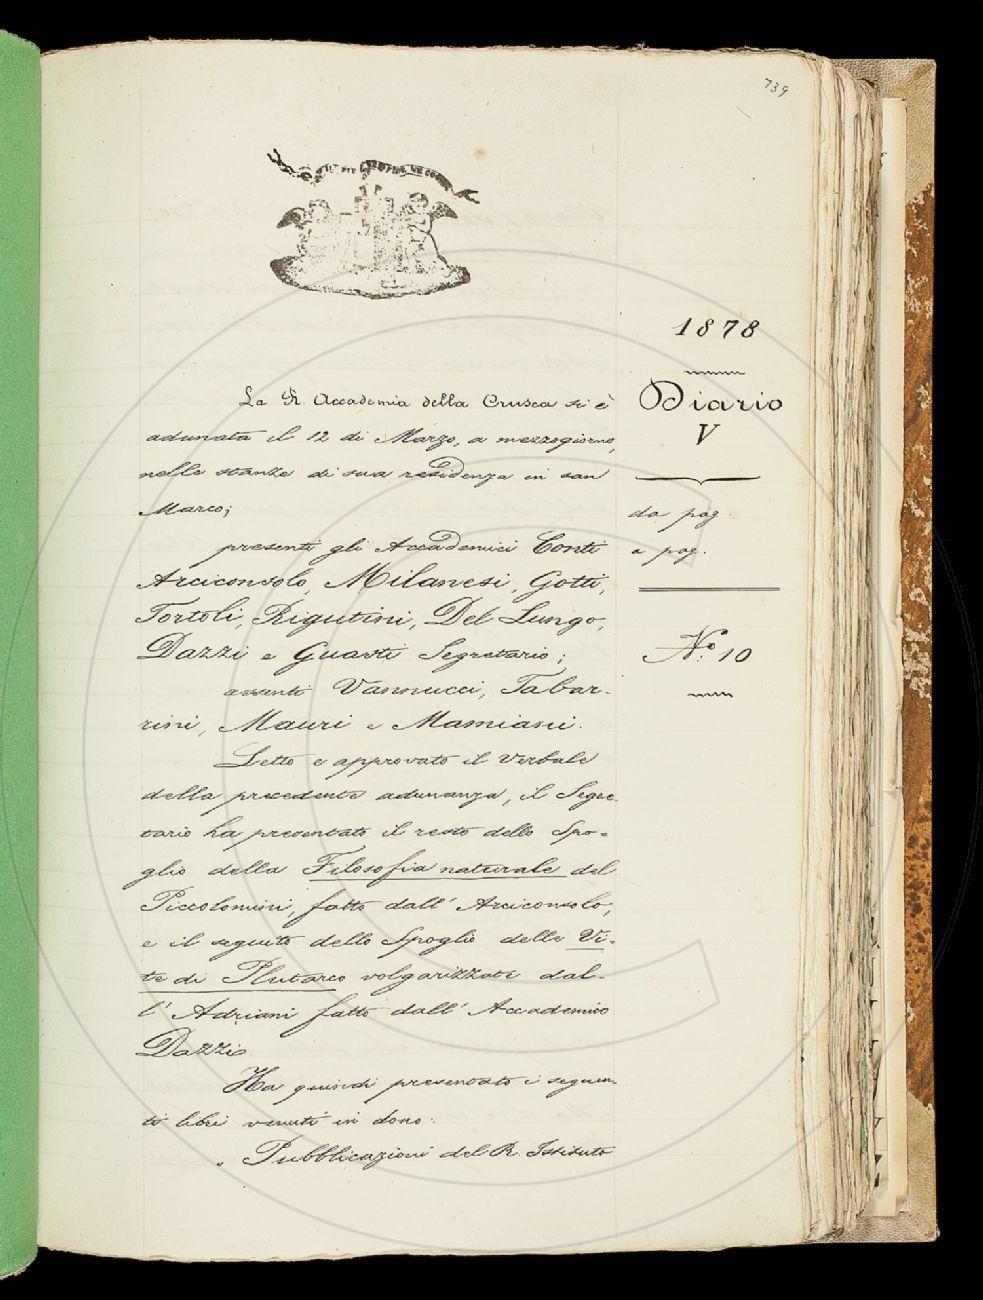 739
1878
Diario
V
da pag
a pag.
N.º 10
La R. Accademia della Crusca si è
adunata il 12 di Marzo, a mezzogiorno,
nelle stanze di sua residenza in san
Marco;
presenti gli Accademici Conti
Arciconsolo, Milanesi, Gotti,
Tortoli, Rigutini, Del Lungo,
Dazzi e Guasti Segretario;
assenti Vannucci, Tabar-
rini, Mauri e Mamiani.
Letto e approvato il Verbale
della precedente adunanza, il Segre-
tario ha presentato il resto dello Spo-
glio della Filosofia naturale del
Piccolomini, fatto dall' Arciconsolo,
e il seguito dello Spoglio delle Vi-
te di Plutarco volgarizzate dal-
l' Adriani fatto dall' Accademico
Dazzi.
Ha quindi presentato i seguen-
ti libri venuti in dono:
" Pubblicazioni del R. Istituto